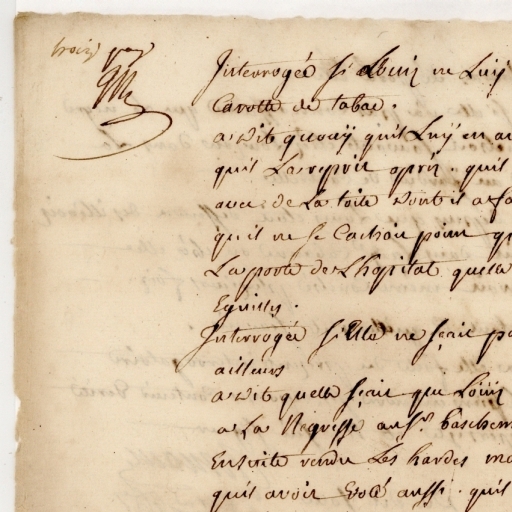 troise. page
Interrogée si Louis ne Luy
Carotte de tabac.
a dit quouy quil Luy en a
quil La repris apres. quil
avec de La toile dont il a fa
quil ne se Cachoit point q
La porte de Lhopital quelle
Eguilly.
Interrogée si Elle ne sçait pa
ailleurs
a dit quelle sçait que Louis
a La Negresse au Sr.
Ensuite rendu Les hardes ma
quil avoit Volé aussi. quil